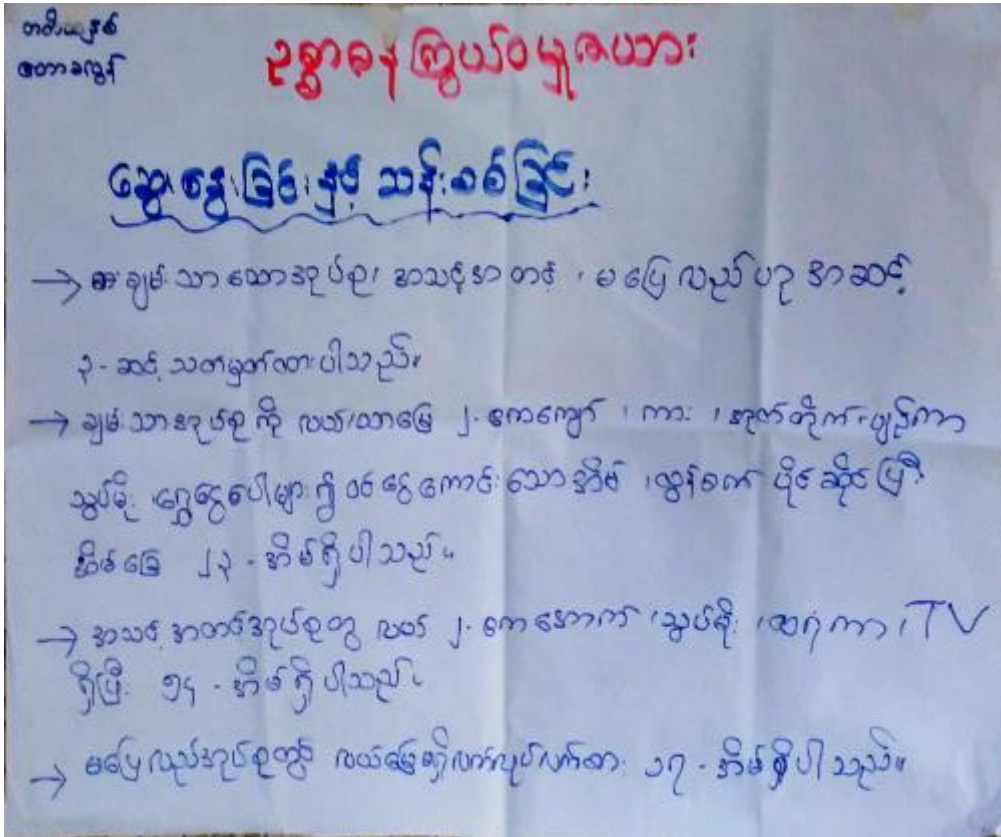 တတိယနှစ်
တောခလွန်
ဥစ္စာဓန ကြွယ်ဝမှုဇယား
ဆွေးနွေးခြင်းနှင့် သန်းစစ်ခြင်း
→ ချမ်းသာသောအုပ်စု၊ အသင့်အတင့်၊ မပြေလည်ဟူ၍ အဆင့်
၃ - ဆင့် သတ်မှတ်ထားပါသည်။
→ ချမ်းသာအုပ်စုကို လယ်/ယာမြေ ၂- ဧကကျော်၊ ကား၊ အုတ်တိုက်၊ ပျဉ်ကာ
သွပ်မိုး၊ ရွှေငွေပေါများ၍ ဝင်ငွေကောင်းသောအိမ်၊ ထွန်စက် ပိုင်ဆိုင်ပြီး
အိမ်ခြေ ၂၃ - အိမ်ရှိပါသည်။
→ အသင့်အတင့်အုပ်စုတွင် လယ် ၂- ဧကအောက်၊ သွပ်မိုး၊ ထရံကာ၊ TV
ရှိပြီး ၅၄ - အိမ်ရှိပါသည်။
→ မပြေလည်အုပ်စုတွင် လယ်မြေမရှိလက်လုပ်လက်စား ၁၇ - အိမ်ရှိပါသည်။